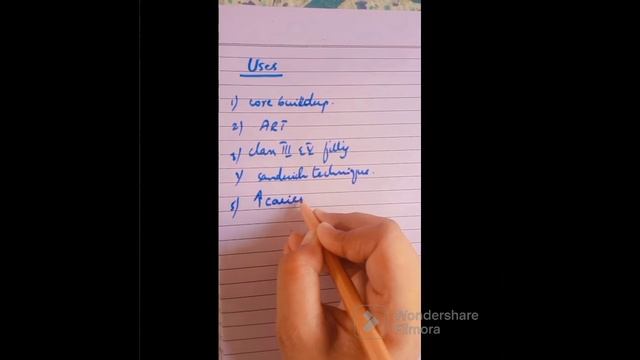 Uses
1) core buildup.
2) ART
3) class III & V filling
4) sandwich technique.
5) ↑ caries
Wondershare
Filmora